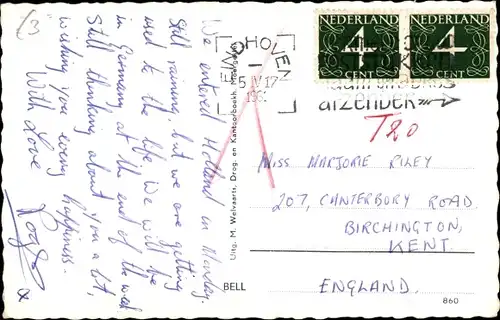 (3
We entered Holland in Monday.
Still raining, but we are getting
used to the life. We will be
in Germany at the end of the week
Still thinking about you a lot,
wishing you every happiness.
With Love
x
Uitg. M. Welvaarts, Drog. en Kantoorboekh.
BELL
NEDERLAND NEDERLAND
4 4
CENT CENT
VELDHOVEN
5 IV 17
afzender
T20
MISS MARJORIE RILEY
207, CANTERBURY ROAD
BIRCHINGTON,
KENT.
ENGLAND.
860